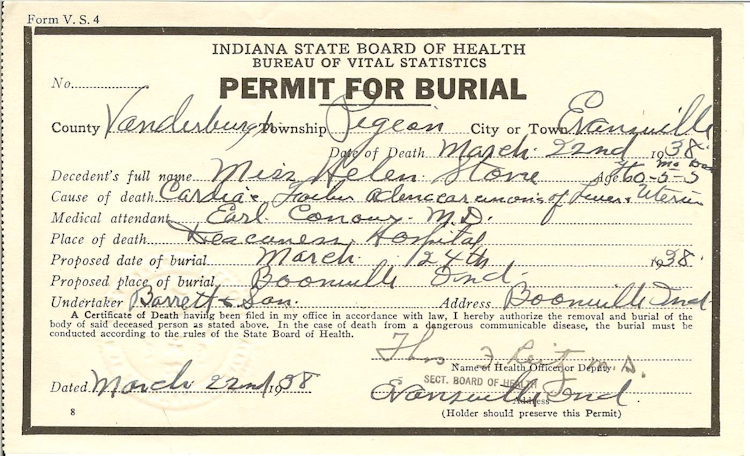 Form V. S. 4
INDIANA STATE BOARD OF HEALTH
BUREAU OF VITAL STATISTICS
No.
PERMIT FOR BURIAL
County Vanderburgh Township Pigeon City or Town Evansville
Date of Death March 22nd 1938
Decedent's full name Miss Helen Stone Age 60-5-5
Cause of death Cardiac Adenocarcinoma of Liver & Uterus
Medical attendant Earl Conour M.D.
Place of death Deaconess Hospital
Proposed date of burial March 24th 1938
Proposed place of burial Boonville Ind.
Undertaker Barrett & Son. Address Boonville Ind
A Certificate of Death having been filed in my office in accordance with law, I hereby authorize the removal and burial of the
body of said deceased person as stated above. In the case of death from a dangerous communicable disease, the burial must be
conducted according to the rules of the State Board of Health.
M. D.
Name of Health Officer or Deputy
SECT. BOARD OF HEALTH
Dated March 22nd 1938 Evansville Ind.
Address
8 (Holder should preserve this Permit)